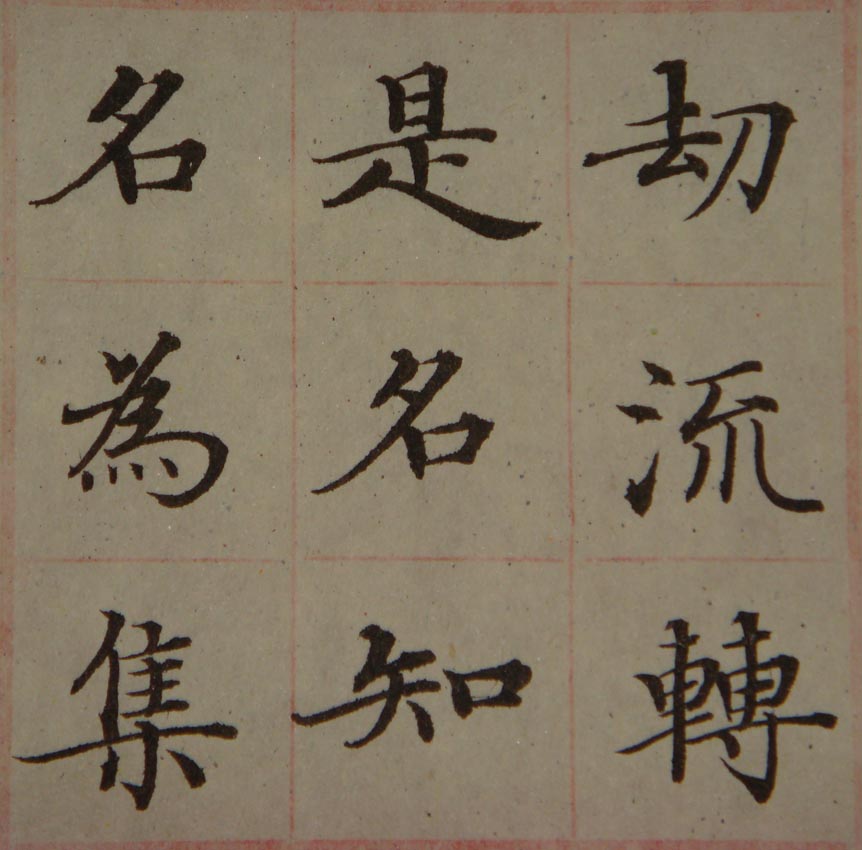 刧流轉
是名知
名為集